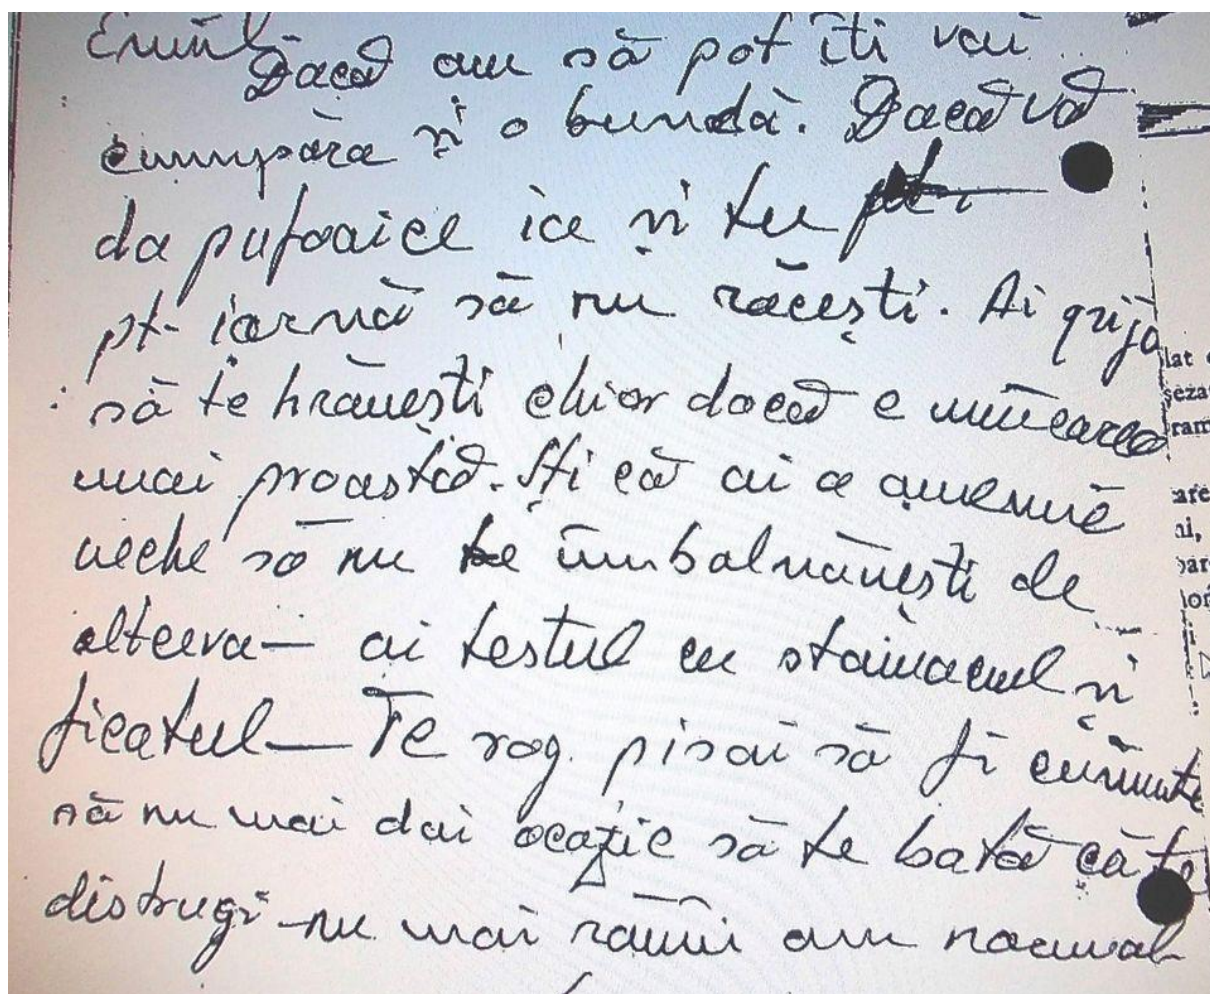 Emil
Dacă am să pot îți voi
cumpăra și o bundă. Dacă vă
da pufoaice ia și tu
pt. iarnă să nu răcești. Ai grija
să te hrănești chiar dacă e mîncarea
mai proastă. Ști că ai o anemie
veche să nu te îmbolnăvești de
altceva— ai destul cu stomacul și
ficatul— Te rog pisoi să fi cuminte
să nu mai dai ocazie să te bată că te
distrugi-nu mai rămîi om normal-
lat
seza
ram
are
ai,
par